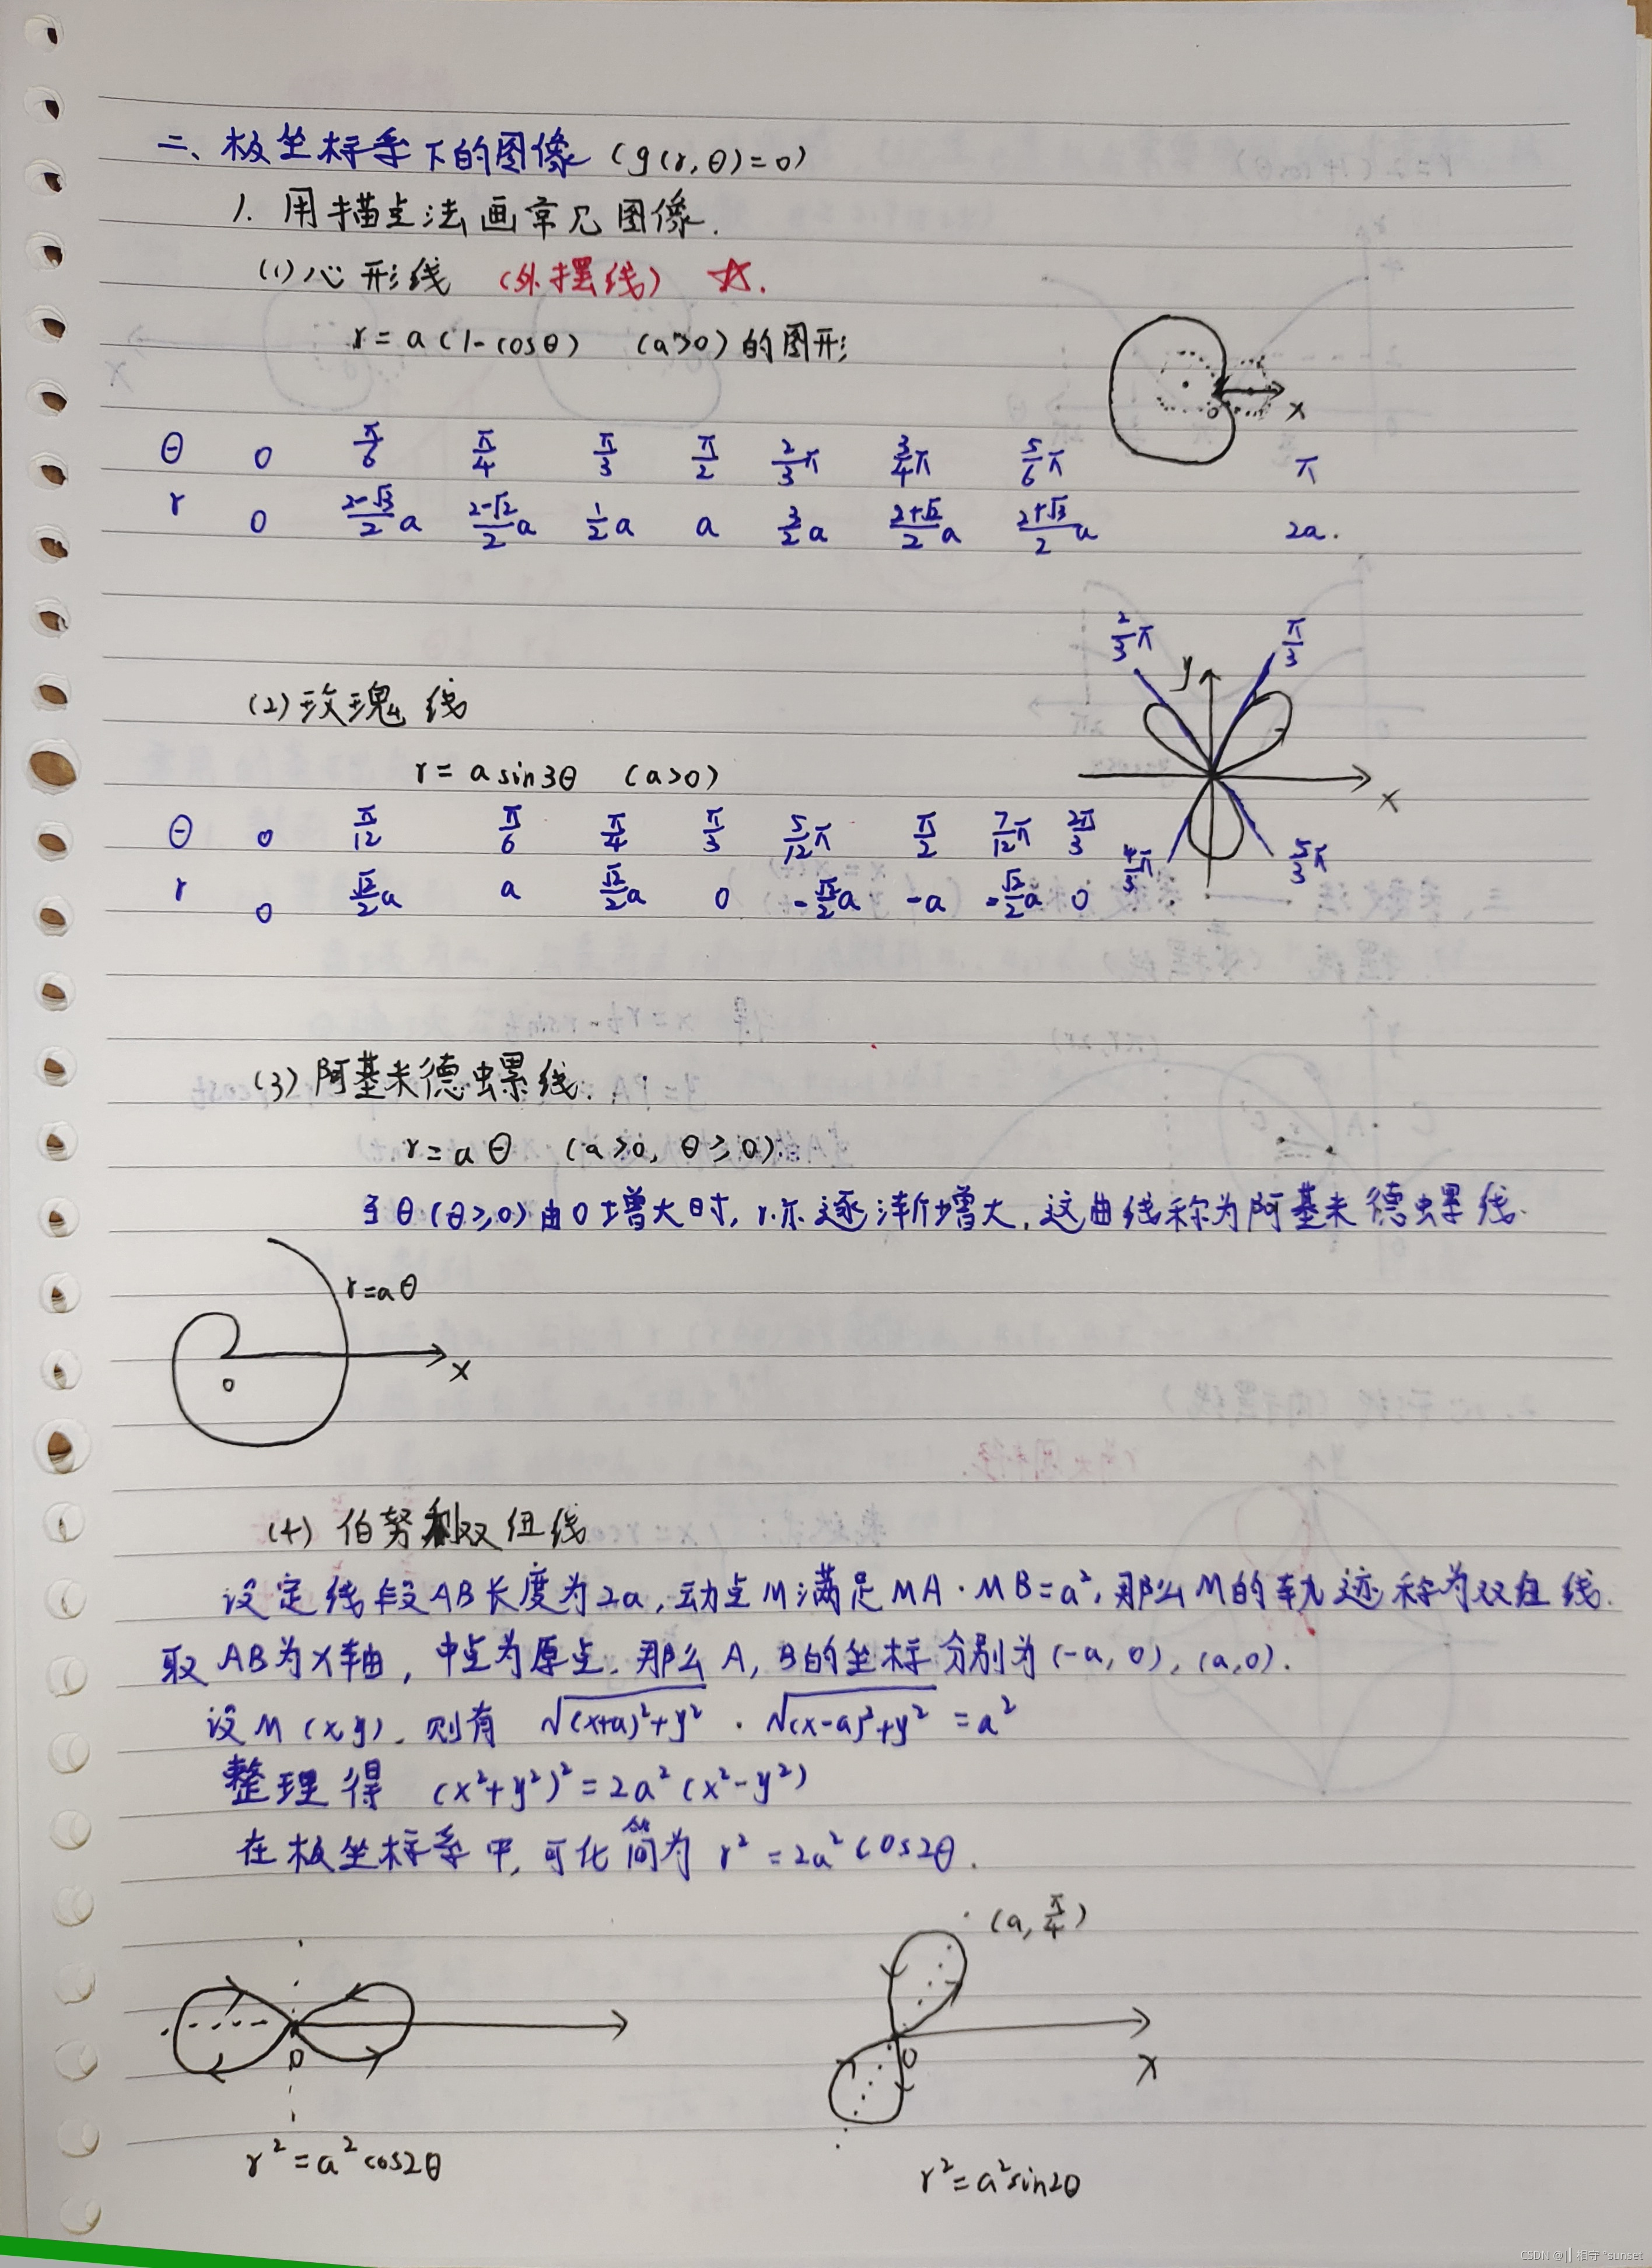 二、极坐标系下的图像 (g(r,θ)=0)
1. 用描点法画常见图像.
(1) 心形线 (外摆线) ☆.
r = a(1-cosθ) (a>0) 的图形
O x
θ 0 π/6 π/4 π/3 π/2 2/3π 3/4π 5/6π π
r 0 (2-√3)/2a (2-√2)/2a 1/2a a 3/2a (2+√2)/2a (2+√3)/2a 2a.
2/3π π/3
y
(2) 玫瑰线
r = a sin3θ (a>0)
x
θ 0 π/12 π/6 π/4 π/3 5/12π π/2 7/12π 2π/3
4/3π 5/3π
r 0 √2/2a a √2/2a 0 -√2/2a -a -√2/2a 0
(3) 阿基米德螺线.
r = aθ (a>0, θ≥0).
当θ(θ≥0)由0增大时, r亦逐渐增大, 这曲线称为阿基米德螺线.
r=aθ
x
O
(4) 伯努利双纽线
设定线段AB长度为2a, 动点M满足MA·MB=a², 那么M的轨迹称为双纽线.
取AB为X轴, 中点为原点. 那么A, B的坐标分别为(-a, 0), (a,0).
设M(x,y). 则有 √(x+a)²+y² · √(x-a)²+y² = a²
整理得 (x²+y²)² = 2a²(x²-y²)
在极坐标系中, 可化简为 r² = 2a²cos2θ.
(a, π/4)
O
O x
r²=a²cos2θ
r²=a²sin2θ
CSDN @|| 相守 °sunset